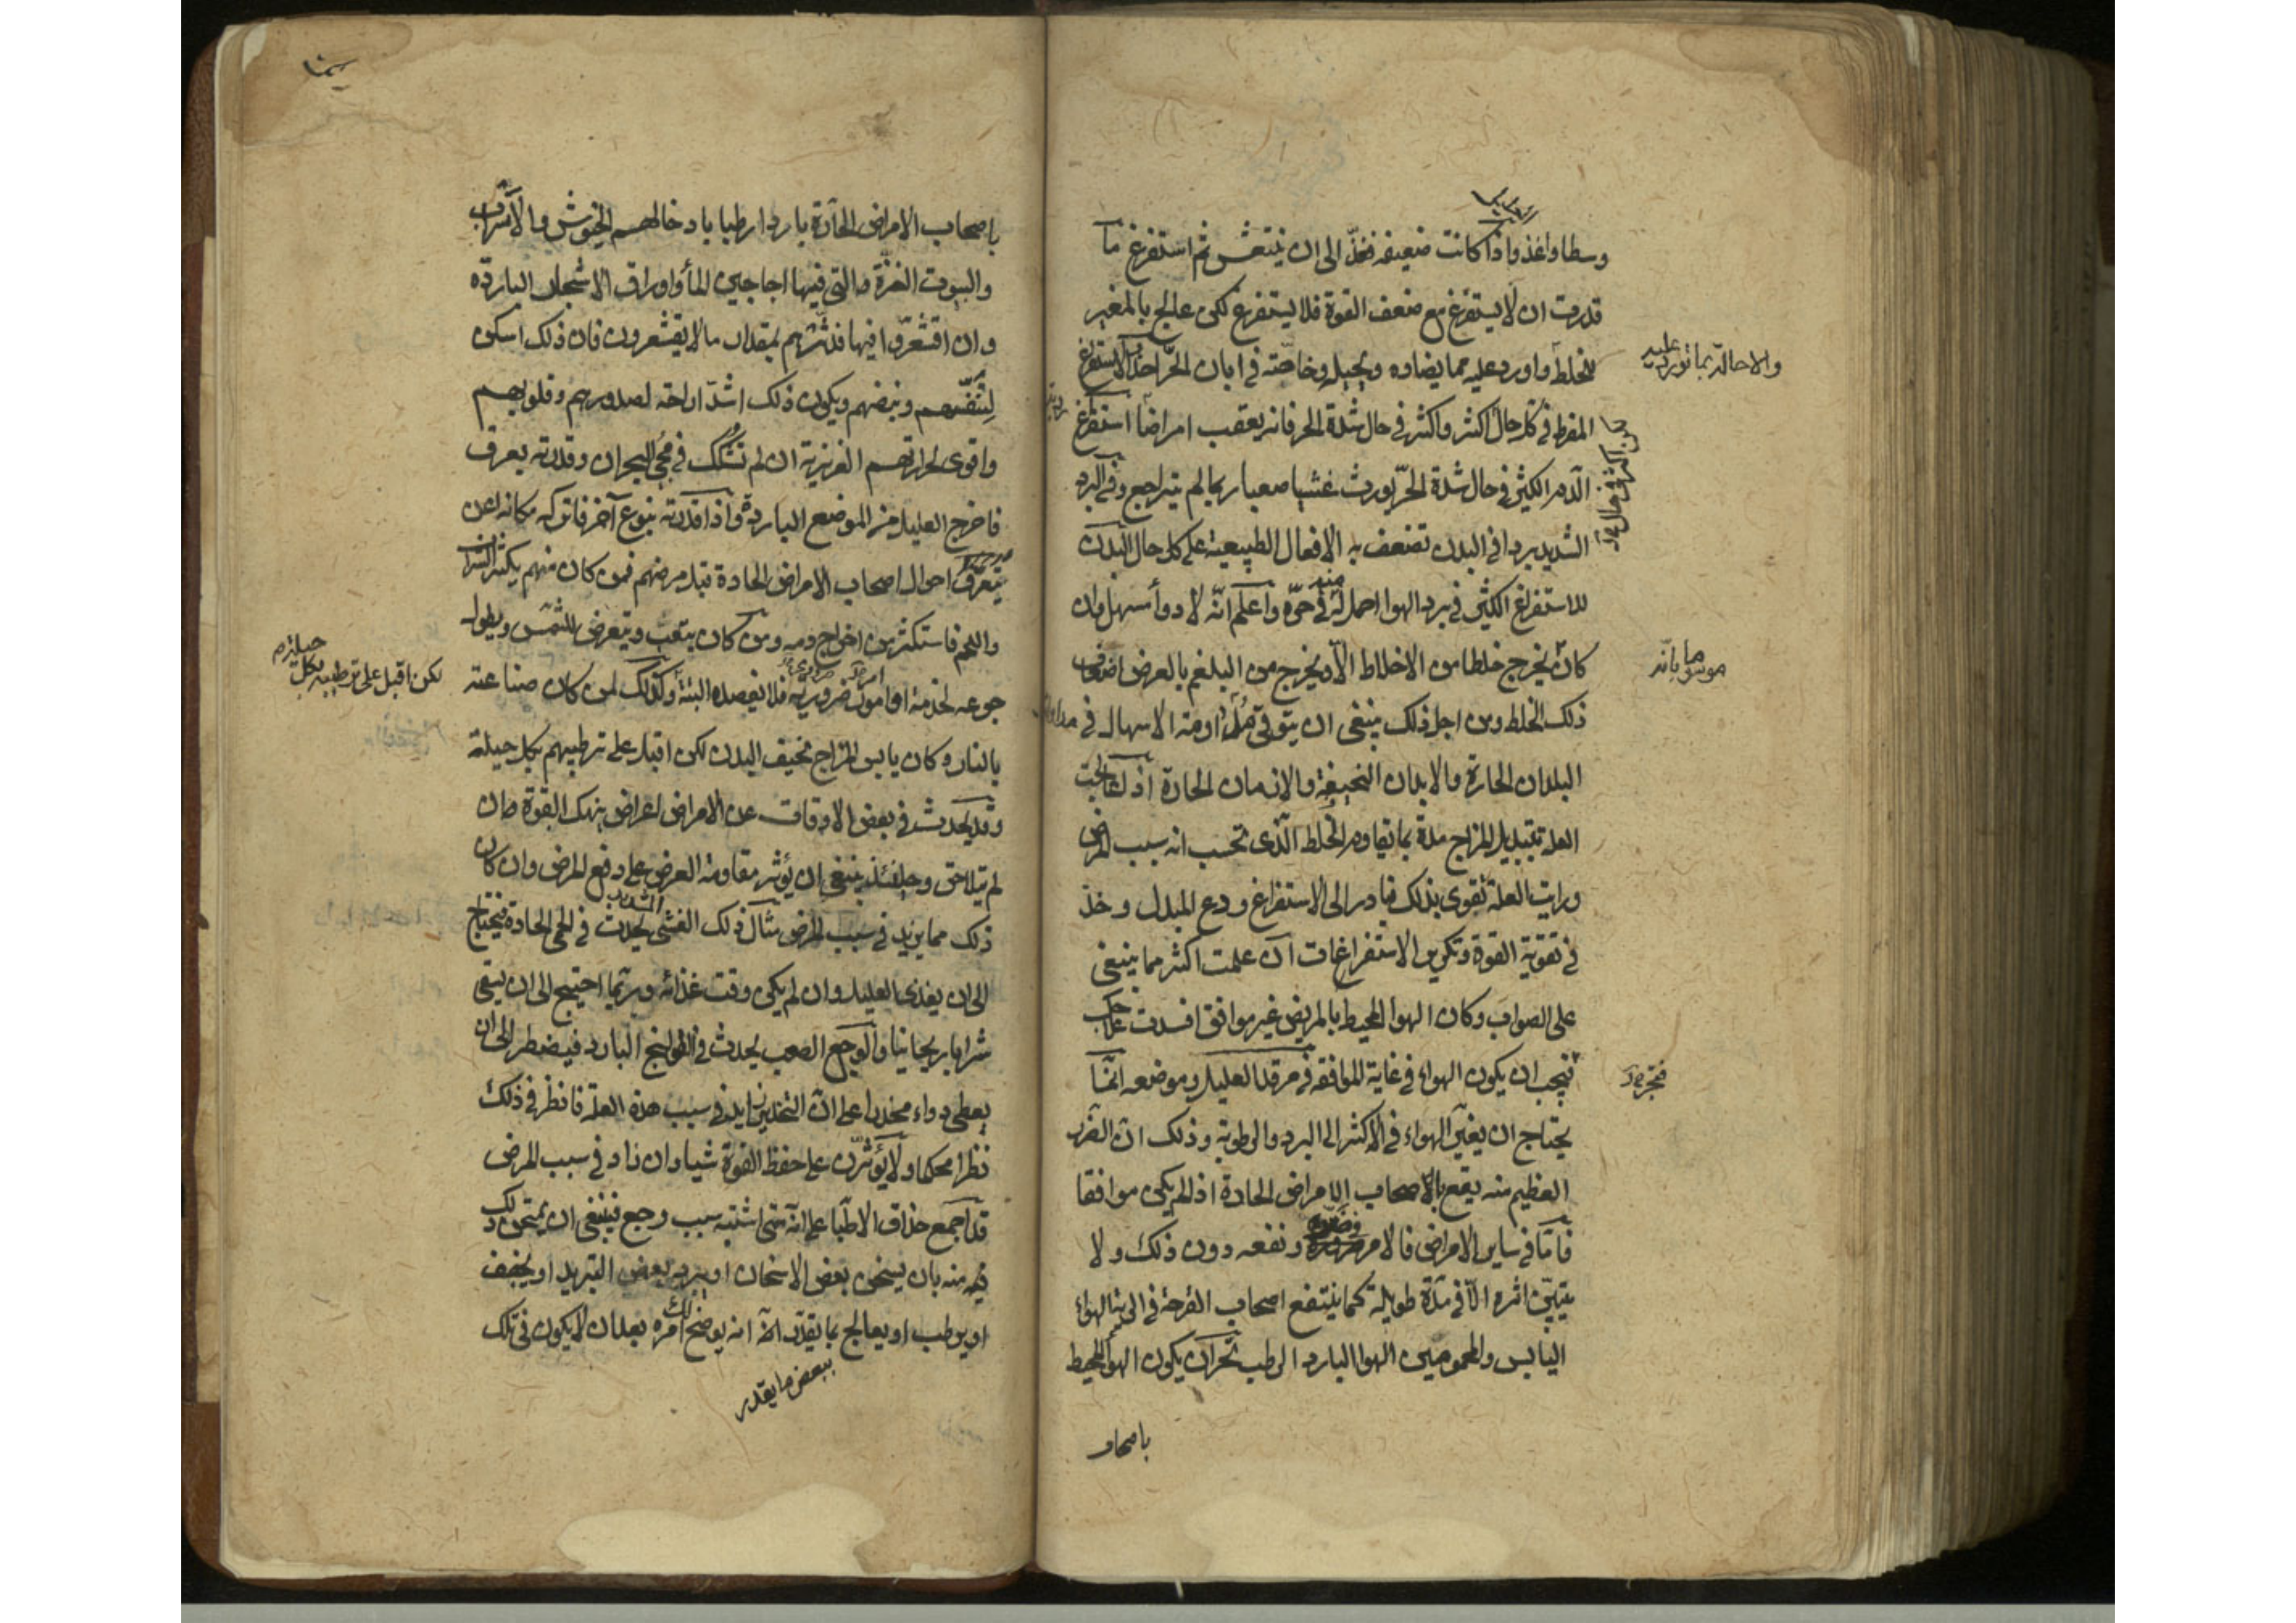 وسطا واغذ واذا كانت ضعيفه فخذ الى ان ينتعش ثم استفرغ ما
قدرت ان لا يستفرغ مع ضعف القوة فلا يستفرغ لكن عالج بالمغير
للخلط واورد عليه مما يضاده ويحيله وخاصة في ابان الحر احذر الاستفراغ
والاحالة بما تورد عليه
المفرط في كل حال اكثر واكثر في حال شدة الحر فانه يعقب امراضا استفراغ
الدم الكثير في حال شدة الحر يورث غشيا صعبا ربما لم يتراجع وفي البرد
الشديد بردا في البدن تضعف به الافعال الطبيعية على كل حال البدن
للاستفراغ الكثير في برد الهوا احمل منه في حره واعلم انه لا دوا مسهل وان
كان يخرج خلطا من الاخلاط الا ويخرج من البلغم بالعرض اضعاف
ذلك الخلط ومن اجل ذلك ينبغي ان يتوقى مداومة الاسهال في
البلدان الحارة والابدان النحيفة والازمان الحادة اذا عالجت
العلة بتبديل المزاج مدة بما يقاوم الخلط الذي تحسب انه سبب المرض
ورايت العلة تقوى بذلك فبادر الى الاستفراغ ودع المبدل وخذ
في تقوية القوة وتكرير الاستفراغات ان علمت اكثر مما ينبغي
على الصواب وكان الهوا المحيط بالمريض غير موافق افسدت علاجك
فيجب ان يكون الهواء في غاية الموافقه في مرقد العليل وموضعه انما
يحتاج ان يغير الهواء في الاكثر الى البرد والرطوبة وذلك ان الضرر
العظيم منه يقع باصحاب الامراض الحادة اذا لم يكن موافقا
فاما في ساير الامراض فالامر في ضرره ونفعه دون ذلك ولا
يتبين اثره الا في مدة طويلة كما ينتفع اصحاب القرحة في الرئة الهواء
اليابس والمحمومين الهوا البارد الرطب تحر ان يكون الهوا المحيط
باصحاب
باصحاب الامراض الحادة باردا رطبا بادخالهم الخيوش والاسراب
والبيوت النزة والتي فيها اجاجين الما واوراق الاشجار الباردة
وان اقشعروا فيها فدثرهم بمقدار ما لا يقشعرون فان ذلك اسكن
لتنفسهم ونبضهم ويكون ذلك اشد اراحة لصدورهم وقلوبهم
واقوى لحرارتهم الغريزية ان لم تشك في مجي البحران وقدرته بعرق
فاخرج العليل من الموضع البارد واذا قدرته بنوع آخر فاتركه مكانه اعن
بتعرف احوال اصحاب الامراض الحادة قبل مرضهم فمن كان منهم يكثر الشراب
واللحم فاستكثر من اخراج دمه ومن كان يتعب ويتعرض للشمس ويطول
جوعه لخدمة او امور ضرورية فلا تفصده البتة وكذلك لمن كان صناعته
لكن اقبل على ترطيبه بكل حيلة
بالنار وكان يابس المزاج نحيف البدن لكن اقبل على ترطيبهم بكل حيلة
وقد يحدث في بعض الاوقات عن الامراض اعراض ينهك القوة وان
لم يتلاحق وحينئذ ينبغي ان يؤثر مقاومة العرض على دفع المرض وان كان
ذلك مما يزيد في سبب المرض مثال ذلك الغشي الشديد يحدث في الحمى الحادة فيحتاج
الى ان يغذى العليل وان لم يكن وقت غذائه وربما احتيج الى ان يسقى
شرابا ريحانيا والوجع الصعب يحدث في القولنج البارد فيضطر الى ان
يعطى دواء مخدرا على ان التخدير زايد في سبب هذه العلة فانظر في ذلك
نظرا محكما ولا تؤثرن على حفظ القوة شيا وان زاد في سبب المرض
قد اجمع حذاق الاطبا على انه متى اشتبه سبب وجع فينبغي ان يمتحن ذلك
فيه منه بان يسخن بعض الاسخان او يبرد بعض التبريد او يجفف
او يرطب او يعالج بما يقدر انه يوضح لك امره بعد ان لا يكون في تلك
ببعض ما يقدر